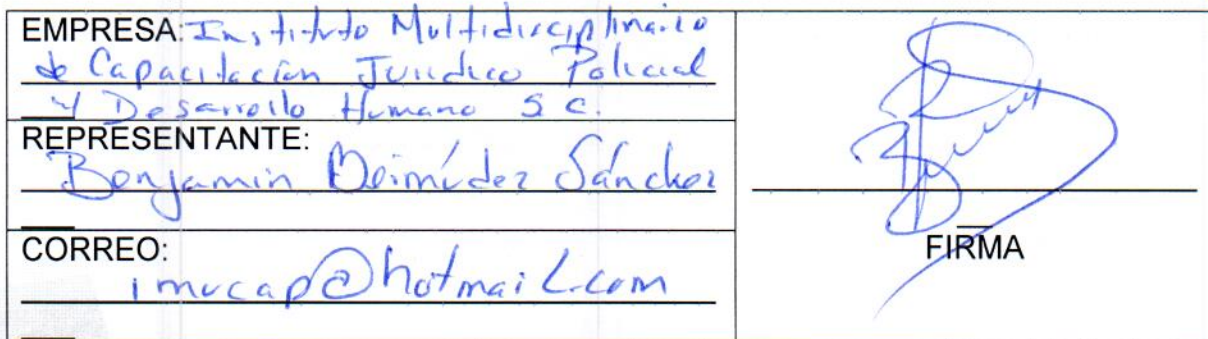 EMPRESA: Instituto Multidisciplinario
de Capacitación Jurídico Policial
y Desarrollo Humano S.C.
REPRESENTANTE:
Benjamin Bermúdez Sánchez
CORREO:
imucap@hotmail.com
FIRMA